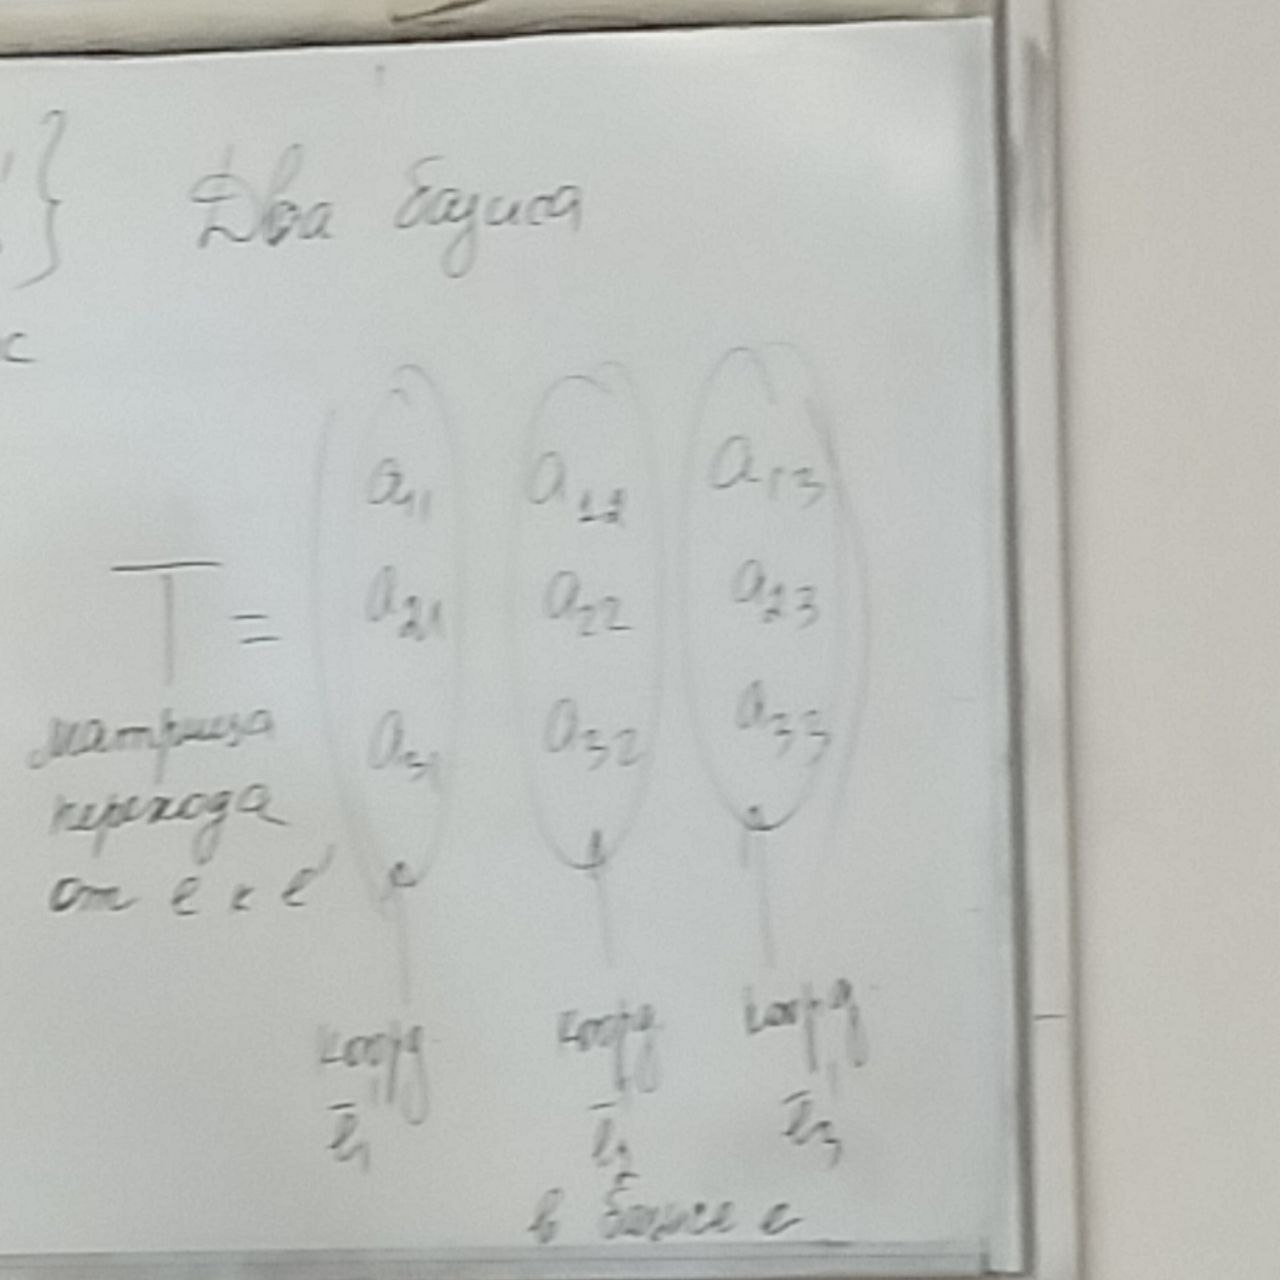 } Два базиса
с
a₁₁ a₁₂ a₁₃
T = a₂₁ a₂₂ a₂₃
a₃₁ a₃₂ a₃₃
матрица
перехода
от e к e'
коорд коорд коорд
ē₁' ē₂' ē₃'
в базисе e